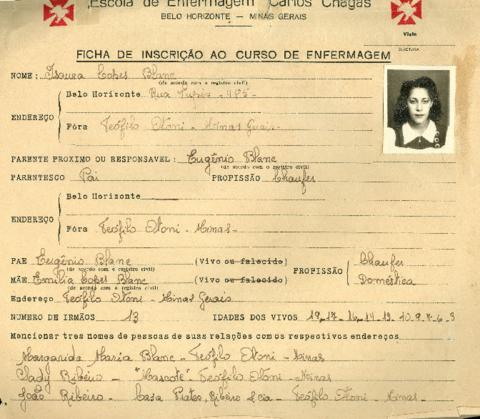 Escola de Enfermagem "Carlos Chagas"
BELO HORIZONTE — MINAS GERAIS
Visto
DIRETORA
FICHA DE INSCRIÇÃO AO CURSO DE ENFERMAGEM
NOME: Isaura Lopes Blanc
(de acordo com o registro civil)
Belo Horizonte Rua Tupis - 485 -
ENDEREÇO
Fóra Teófilo Otoni - Minas Gerais -
PARENTE PROXIMO OU RESPONSAVEL: Eugênio Blanc
(de acordo com o registro civil)
PARENTESCO Pai PROFISSÃO Chaufer
Belo Horizonte
ENDEREÇO
Fóra Teófilo Otoni - Minas -
PAE Eugênio Blanc (Vivo ou falecido) Chaufer
(de acordo com o registro civil)
PROFISSÃO
MÃE Emilia Lopes Blanc (Vivo ou falecido) Doméstica
(de acordo com o registro civil)
Endereço Teófilo Otoni - Minas Gerais
NUMERO DE IRMÃOS 13 IDADES DOS VIVOS 19-17-16-14-12-10-9-7-6-3
Mencionar tres nomes de pessoas de suas relações com os respectivos endereços
Margarida Maria Blanc - Teófilo Otoni - Minas
Clady Ribeiro - "Mascote" Teófilo Otoni - Minas
João Ribeiro - Casa Prates, Ribeiro & Cia - Teófilo Otoni - Minas -